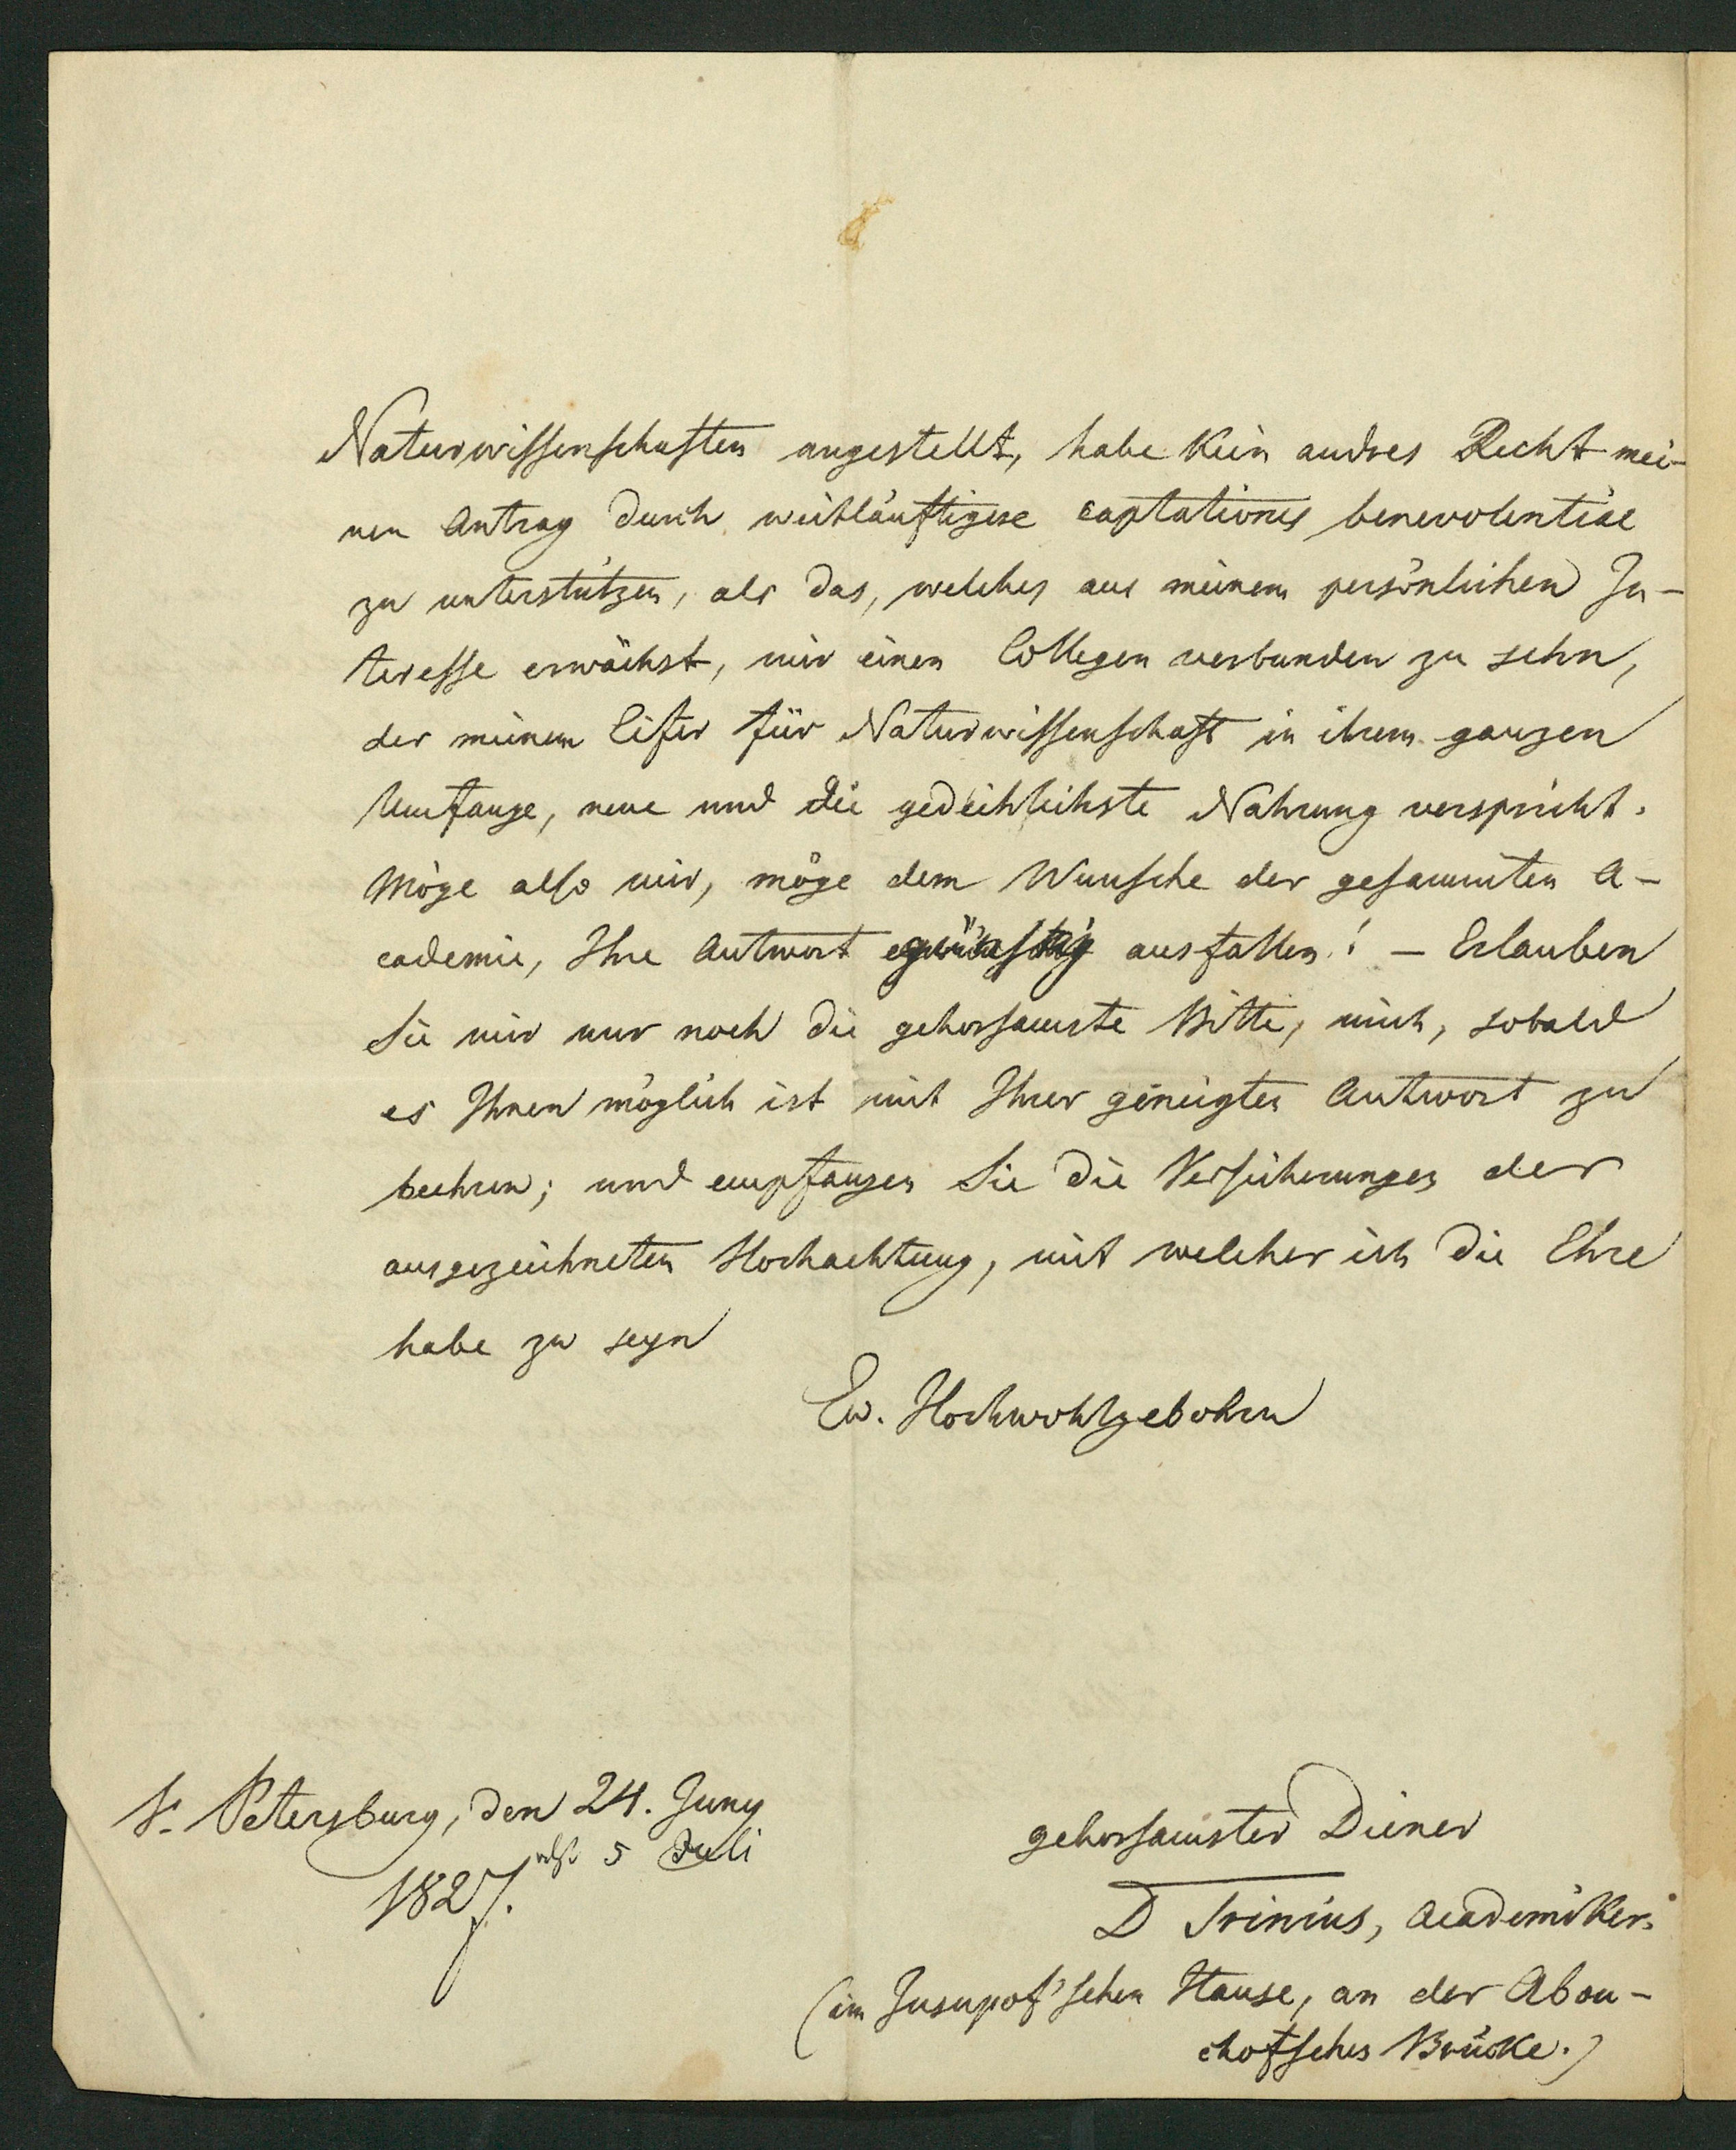 Naturwissenschaften angestellt, habe kein andres Recht mei-
nen Antrag durch weitläuftigere captationes benevolentiae
zu unterstützen, als das, welches aus meinem persönlichen In-
teresse erwächst, mir einen Collegen verbunden zu sehn,
der meinem Eifer für Naturwissenschaft in ihrem ganzen
Umfange, neue und die gedeihlichste Nahrung verspricht.
Möge also mir, möge dem Wunsche der gesammten A-
cademie, Ihre Antwort günstig ausfallen! – Erlauben
Sie mir nur noch die gehorsamste Bitte, mich, sobald
es Ihnen möglich ist mit Ihrer geneigten Antwort zu
beehren; und empfangen Sie die Versicherungen der
ausgezeichneten Hochachtung, mit welcher ich die Ehre
habe zu seyn
Ew. Hochwohlgebohrn
gehorsamster Diener
D Trinius, Academiker.
(im Jusupof'schen Hause, an der Abou-
chofschen Brücke.)
St. Petersburg, den 24. Juny
5 Juli
1827.